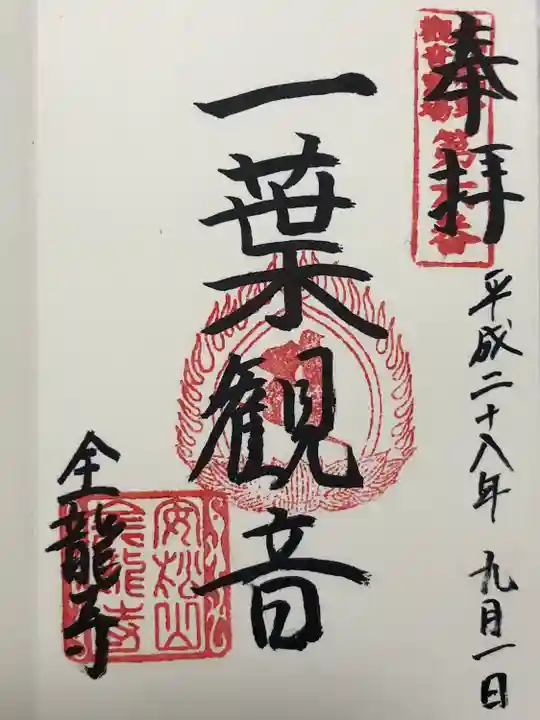 奉拝
平成二十八年 九月一日
一葉観音
金龍寺
安松山
金龍寺